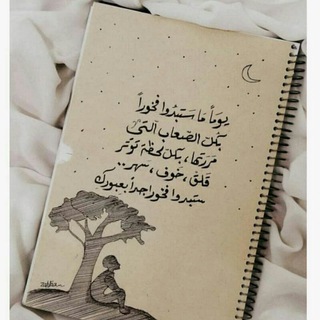 يوماً ما ستبدوا فخوراً
بكل الصعاب التي
مررتها، بكل لحظة توتر
قلق، خوف، سهر..
ستبدوا فخوراً جداً بعبورك